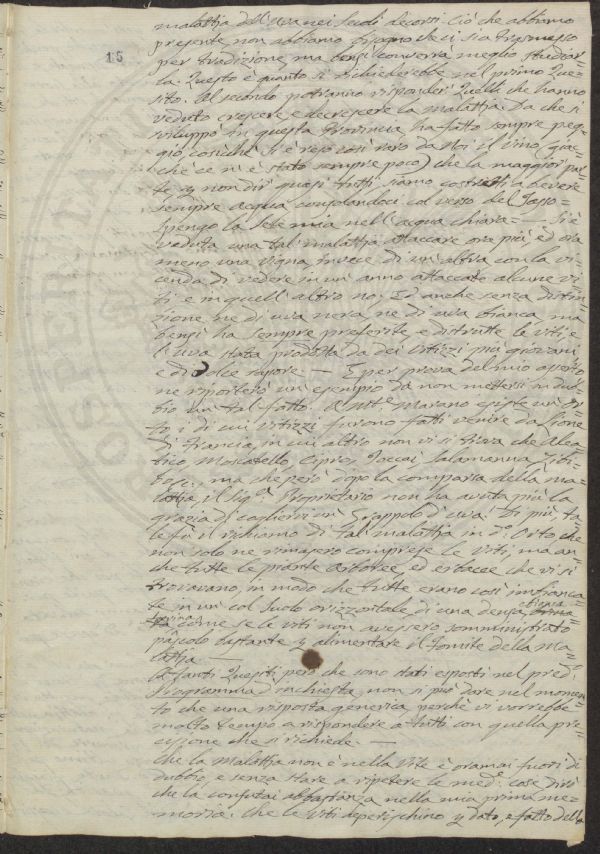 malattia dell'uva nei secoli decorsi. Ciò che abbiamo
presente non abbiamo bisogno che ci sia trasmesso
15
per tradizione, ma bensì converrà meglio studiar=
la. Questo è quanto si richiederebbe nel primo Que=
sito. Al secondo potranno rispondere Quelli che hanno
veduto crescere, e decrescere la malattia. Da che si
sviluppò in questa Provincia ha fatto sempre peg=
gio, cosicchè si è reso così raro da Noi il vino, giac=
chè ce n'è stato sempre poco) che la maggior par=
te p non dir quasi tutti siamo costretti a bevere
sempre acqua consolandoci col verso del Tasso=
Spengo la sete mia nell'acqua chiara = — Si è
veduta una tal malattia attaccare ora più, ed ora
meno una vigna invece di un'altra con la vi=
cenda di vedere in un anno attaccate alcune vi=
ti e in quell'altro no; Ed anche senza distin=
zione ne di uva nera, ne di uva bianca ma
bensì ha sempre preferite e distrutte le Viti, e
l'uva stata prodotta da dei Vitizzi più giovani,
e di dolce sapore — E per prova del mio asserto
ne riporterò un esempio da non mettersi in dub=
bio un tal fatto. A M.te Marano esiste un Or=
to i di cui Vitizzi furono fatti venire da Lione
di Francia, in cui altro non vi si trova che Alea=
tico, Moscatello, Cipro, Toccai, Salamanna, Zibi=
bo &c., ma che però dopo la comparsa della ma=
lattia, il Sig.r Proprietario non ha avuta più la
grazia di cogliervi un Grappolo d'uva. Di più, ta=
le fù il richiamo di tal malattia in d.o Orto che
non solo ne rimasero comprese le Viti, ma an=
che tutte le piante arboree, ed erbacee che vi si
trovavano, in modo che tutte erano così imbianca=
te in un col suolo orizzontale di una densa
come se le viti non avessero somministrato
pascolo bastante p alimentare il fomite della Ma=
lattia —
A tanti Quesiti però che sono stati esposti nel pred.o
Programma d'inchiesta non si può dare nel momen=
to che una risposta generica, perchè vi vorrebbe
molto tempo a rispondere a tutti con quella pre=
cisione che si richiede. —
Che la Malattia non è nella Vite è oramai fuori di
dubbio, e senza stare a ripetere le med.e cose dirò
che la confutai abbastanza nella mia prima me=
moria. Che le Viti deperischino p dato, e fatto della